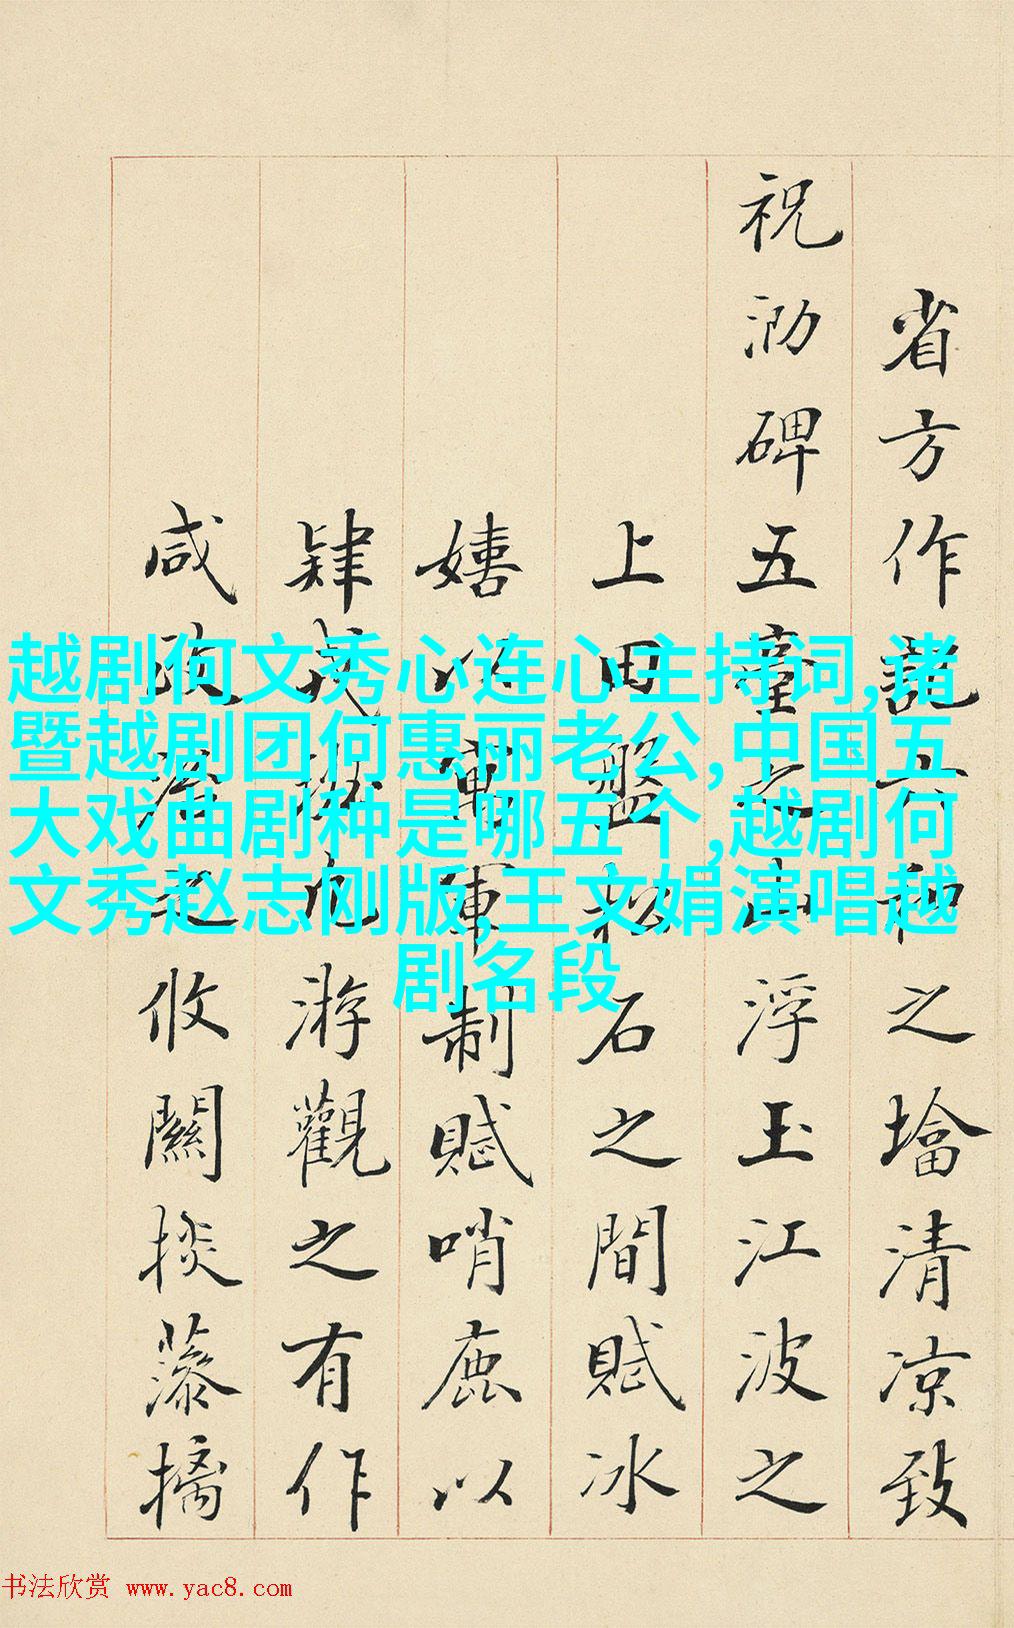 越剧何文秀心连心主持词,诸
暨越剧团何惠丽老公,中国五
大戏曲剧种是哪五个,越剧何
文秀赵志刚版,王文娟演唱越
剧名段
省方作説六和之墖清凉致
祝泐碑五臺之山浮玉江波之
上田盤松石之間賦冰
嬉制賦哨鹿以
肄戎游觀之有作
咸攸關掞藻摛
书法欣赏 www.yac8.com